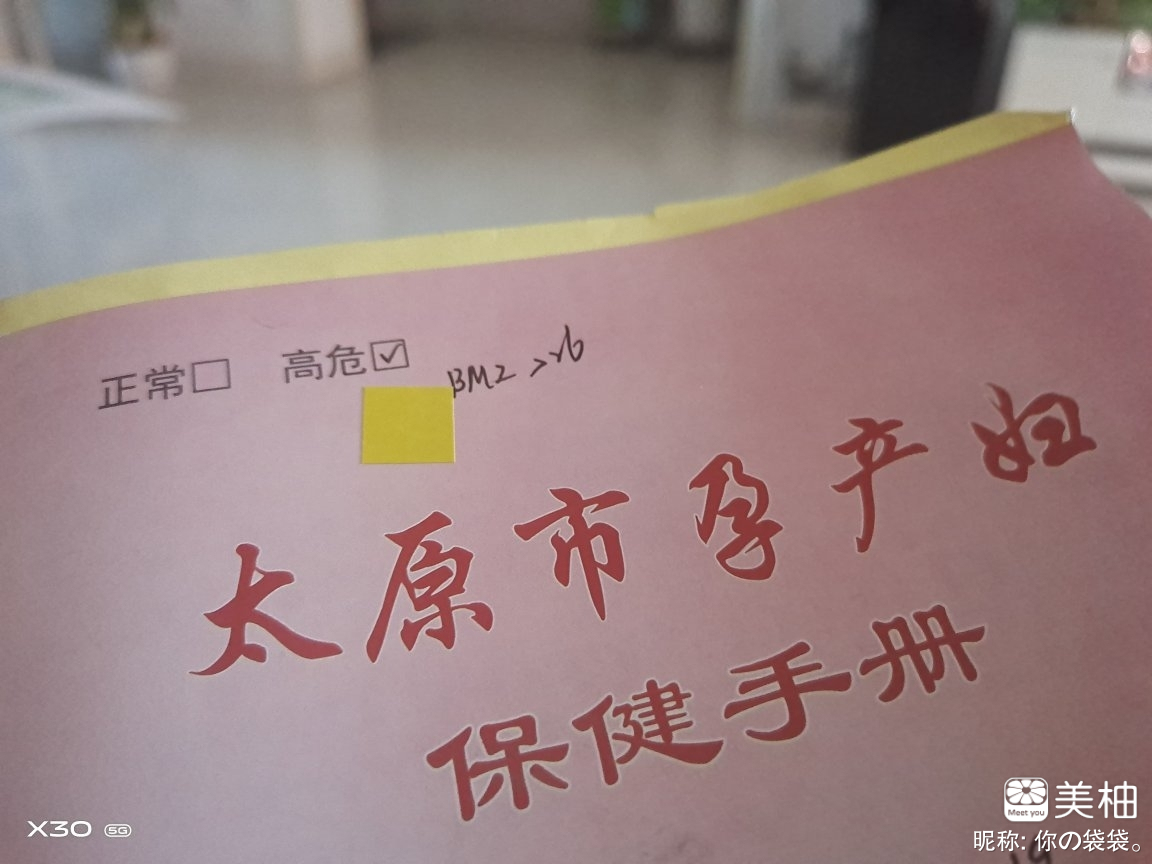 正常□ 高危☑
BMI >26
太原市孕产妇
保健手册
X30 5G
Meet you 美柚
昵称: 你の袋袋。